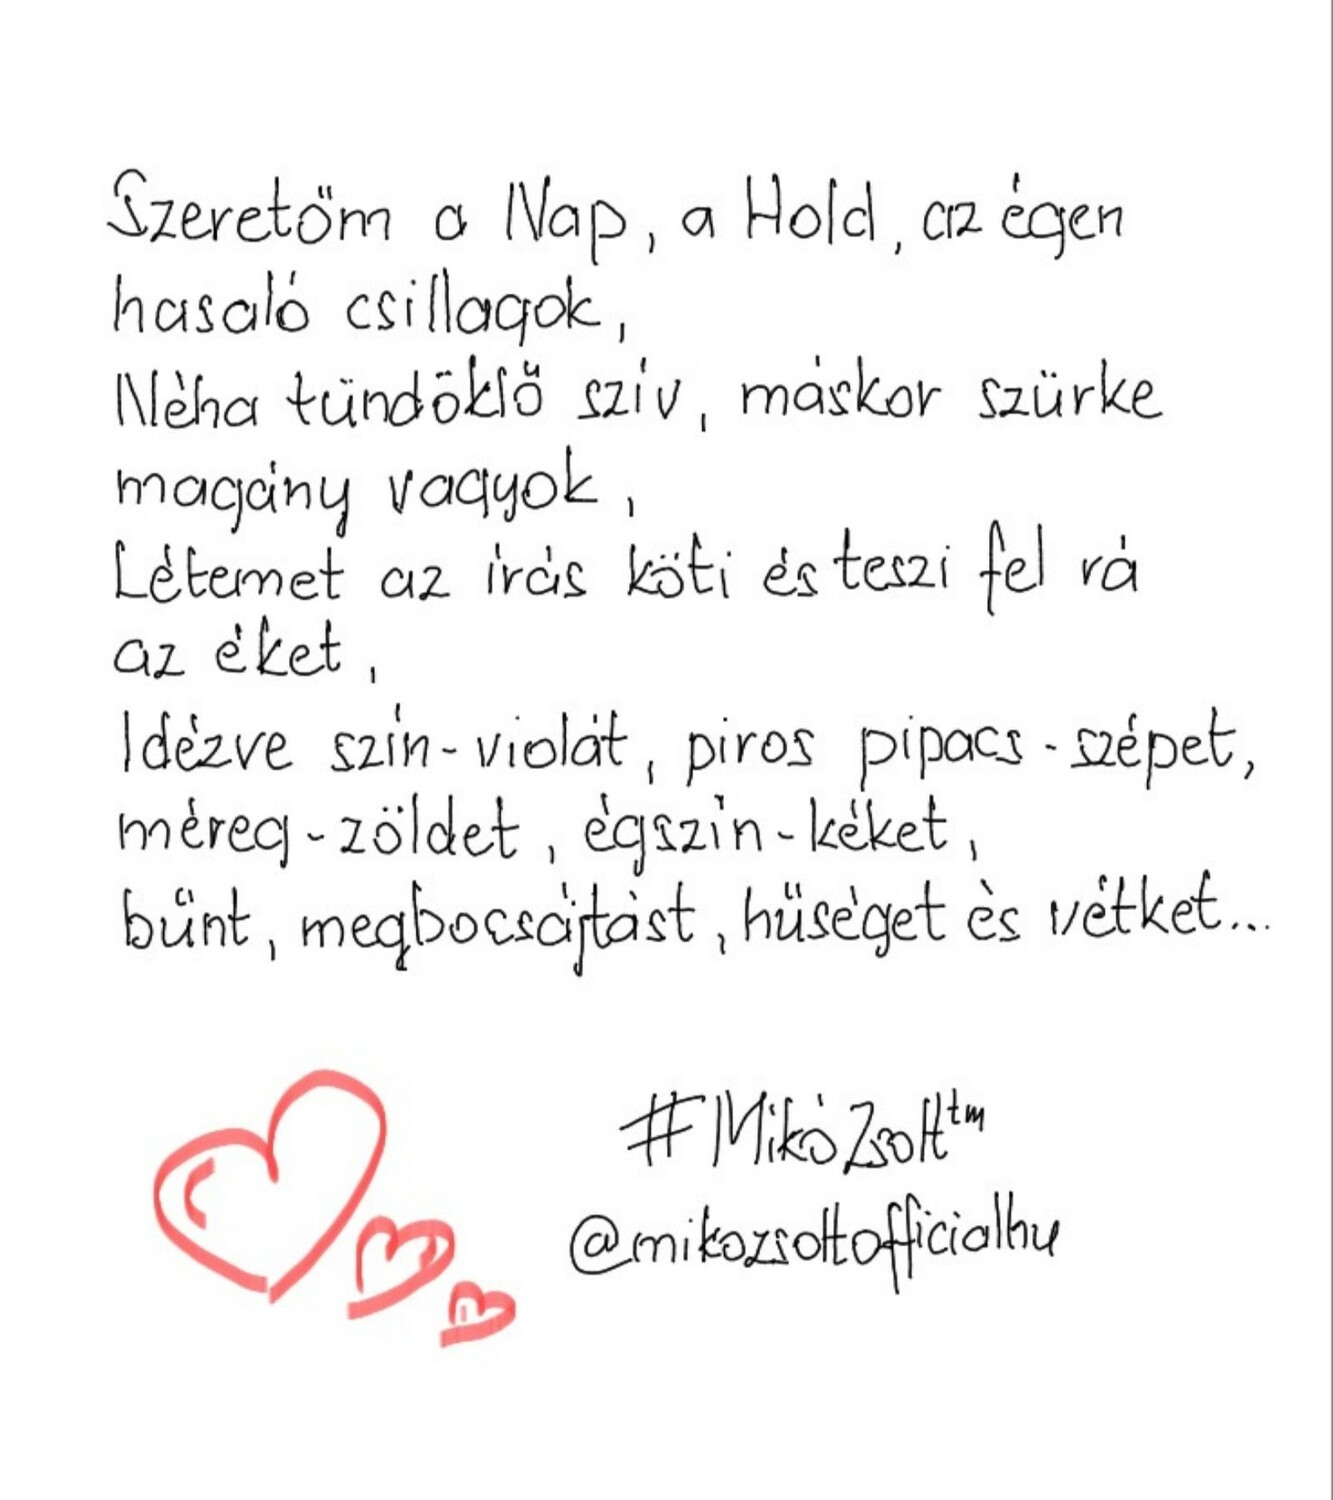 Szeretőm a Nap, a Hold, az égen
hasaló csillagok,
Néha tündöklő szív, máskor szürke
magány vagyok,
Létemet az írás köti és teszi fel rá
az éket,
Idézve szín-violát, piros pipacs-szépet,
méreg-zöldet, égszín-kéket,
bűnt, megbocsájtást, hűséget és vétket...
#MikóZsolt™
@mikozsoltofficialhu